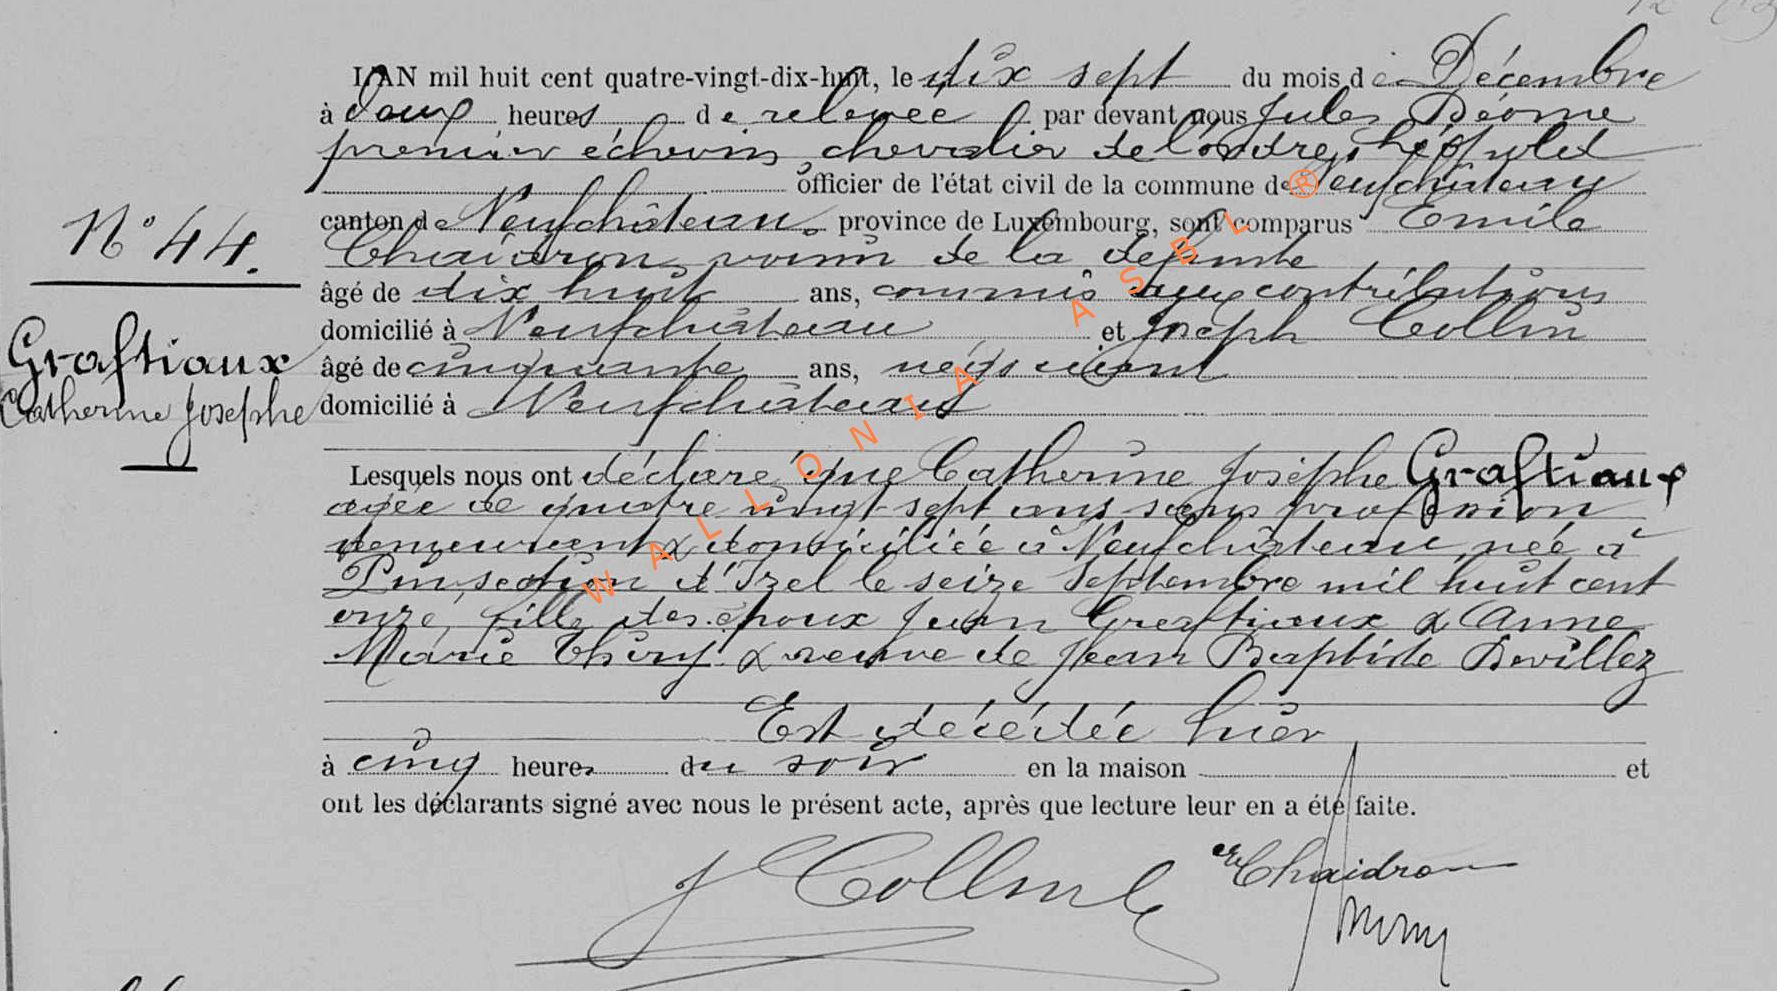 L'AN mil huit cent quatre-vingt-dix-huit, le dix sept du mois de Décembre
à deux heures de relevée par devant nous Jules Déome
premier échevin, chevalier de l'ordre Léopold
officier de l'état civil de la commune de Neufchâteau
canton de Neufchâteau, province de Luxembourg, sont comparus Emile
Chaidron, voisin de la défunte
âgé de dix huit ans, commis aux contributions
N° 44.
domicilié à Neufchâteau et Joseph Collin
Graftiaux
âgé de cinquante ans, négociant
Catherine Josephe
domicilié à Neufchâteau
Lesquels nous ont déclaré que Catherine Josèphe Graftiaux
agée de quatre vingt-sept ans sans profession
demeurant & domiciliée à Neufchâteau, née à
Pin, section d'Izel le seize Septembre mil huit cent
onze, fille des époux Jean Graftiaux & Anne
Marie Thiry & veuve de Jean Baptiste Devillez
Est décédée hier
à cinq heures du soir en la maison et
ont les déclarants signé avec nous le présent acte, après que lecture leur en a été faite.
J Collin
Chaidron
WALLONIA ASBL ®